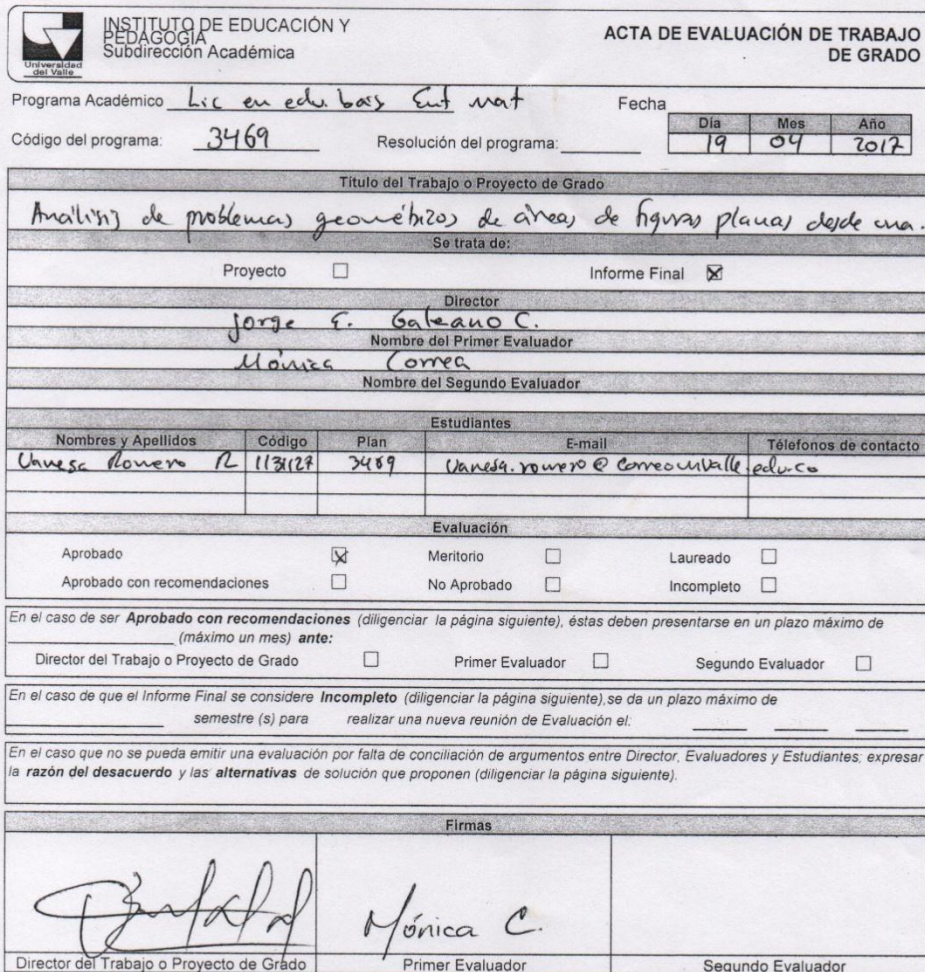 INSTITUTO DE EDUCACIÓN Y
PEDAGOGÍA
Subdirección Académica
Universidad
del Valle
ACTA DE EVALUACIÓN DE TRABAJO
DE GRADO
Programa Académico Lic en edu. bas Enf mat
Fecha
Día Mes Año
19 04 2017
Código del programa: 3469 Resolución del programa:
Título del Trabajo o Proyecto de Grado
Análisis de problemas geométricos de áreas de figuras planas desde una.
Se trata de:
Proyecto ☐ Informe Final ☒
Director
Jorge E. Galeano C.
Nombre del Primer Evaluador
Mónica Correa
Nombre del Segundo Evaluador
Estudiantes
Nombres y Apellidos Código Plan E-mail Télefonos de contacto
Vanesa Romero R 1131127 3469 Vanesa.romero@correounivalle.edu.co
Evaluación
Aprobado ☒ Meritorio ☐ Laureado ☐
Aprobado con recomendaciones ☐ No Aprobado ☐ Incompleto ☐
En el caso de ser Aprobado con recomendaciones (diligenciar la página siguiente), éstas deben presentarse en un plazo máximo de
(máximo un mes) ante:
Director del Trabajo o Proyecto de Grado ☐ Primer Evaluador ☐ Segundo Evaluador ☐
En el caso de que el Informe Final se considere Incompleto (diligenciar la página siguiente),se da un plazo máximo de
semestre (s) para realizar una nueva reunión de Evaluación el:
En el caso que no se pueda emitir una evaluación por falta de conciliación de argumentos entre Director, Evaluadores y Estudiantes; expresar
la razón del desacuerdo y las alternativas de solución que proponen (diligenciar la página siguiente).
Firmas
Mónica C.
Director del Trabajo o Proyecto de Grado Primer Evaluador Segundo Evaluador